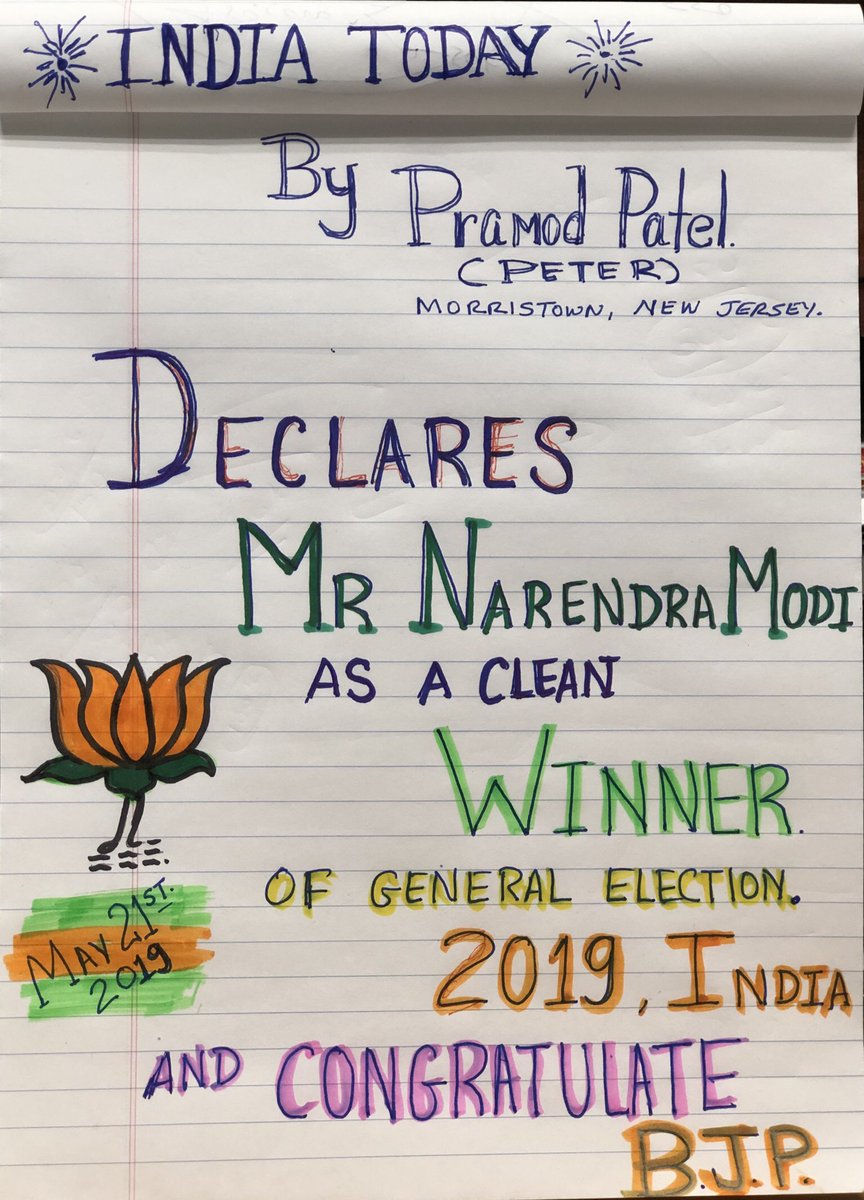 INDIA TODAY
By Pramod Patel.
(PETER)
MORRISTOWN, NEW JERSEY.
DECLARES
MR NARENDRA MODI
AS A CLEAN
WINNER.
OF GENERAL ELECTION.
2019, INDIA
MAY 21ST.
2019
AND CONGRATULATE
B.J.P.